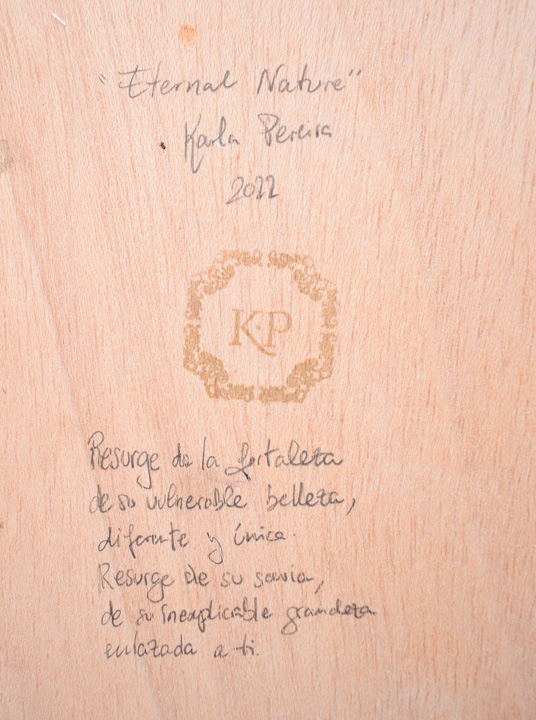 "Eternal Nature"
Karla Pereira
2022
K·P
Resurge de la fortaleza
de su vulnerable belleza,
diferente y única.
Resurge de su savia,
de su inexplicable grandeza
enlazada a ti.